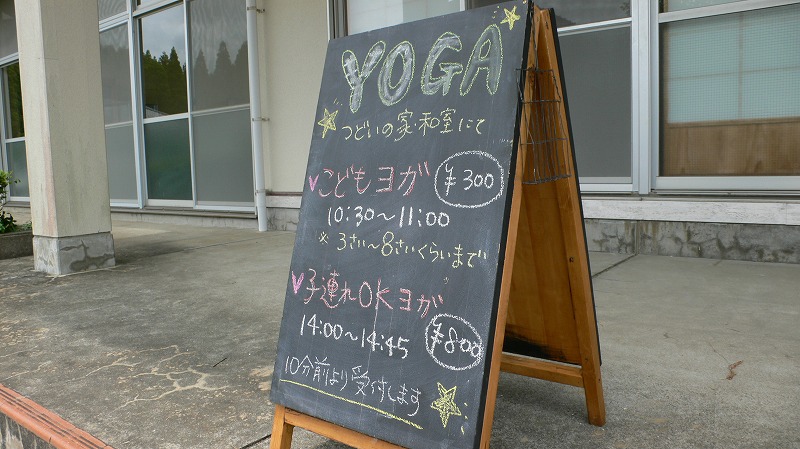 YOGA
つどいの家・和室にて
こどもヨガ ¥300
10:30〜11:00
※ 3さい〜8さいくらいまで
子連れOKヨガ
14:00〜14:45 ¥800
10分前より受付します